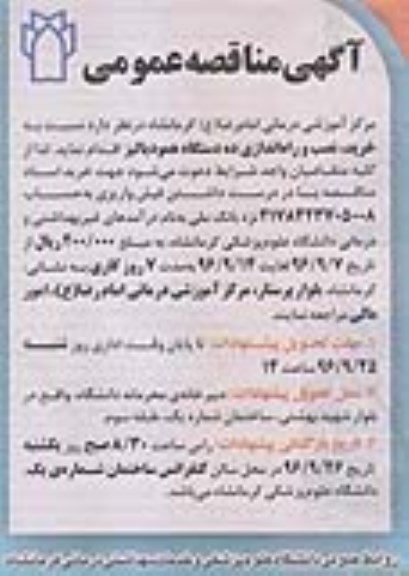 آگهی مناقصه عمومی
مرکز آموزشی درمانی امام رضا(ع) کرمانشاه در نظر دارد نسبت به
خرید، نصب و راه‌اندازی ده دستگاه همودیالیز اقدام نماید. لذا از
کلیه متقاضیان واجد شرایط دعوت می‌شود جهت خرید اسناد
مناقصه با در دست داشتن فیش واریزی به حساب
نزد بانک ملی به‌نام درآمدهای غیربهداشتی و
درمانی دانشگاه علوم پزشکی کرمانشاه، به مبلغ ۴۰۰/۰۰۰ ریال از
تاریخ ۹۶/۹/۷ لغایت ۹۶/۹/۱۴ به‌مدت ۷ روز کاری به نشانی:
کرمانشاه، بلوار پرستار، مرکز آموزشی درمانی امام رضا(ع)، امور
مالی مراجعه نمایند.
۱. مهلت تحویل پیشنهادات: تا پایان وقت اداری روز شنبه
۹۶/۹/۲۵ ساعت ۱۴
۲. محل تحویل پیشنهادات: دبیرخانه‌ی محرمانه دانشگاه واقع در
بلوار شهید بهشتی، ساختمان شماره یک، طبقه سوم
۳. تاریخ بازگشایی پیشنهادات: راس ساعت ۸/۳۰ صبح روز یکشنبه
تاریخ ۹۶/۹/۲۶ در محل سالن کنفرانس ساختمان شماره‌ی یک
دانشگاه علوم پزشکی کرمانشاه می‌باشد.
روابط عمومی دانشگاه علوم پزشکی و خدمات بهداشتی درمانی کرمانشاه